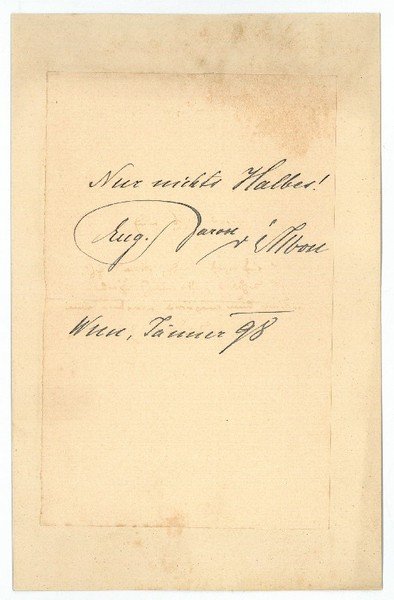 Nur nichts Halbes!
Eug. Baron d'Albon
Wien, Jänner 98